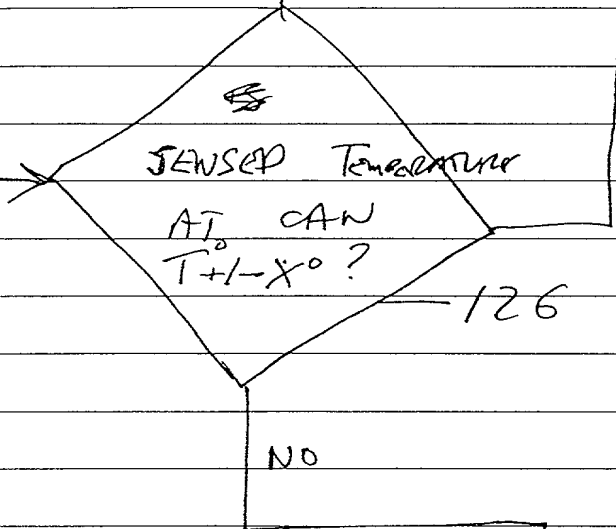 SENSED TEMPERATURE
AT CAN
T°+/-X° ?
126
NO